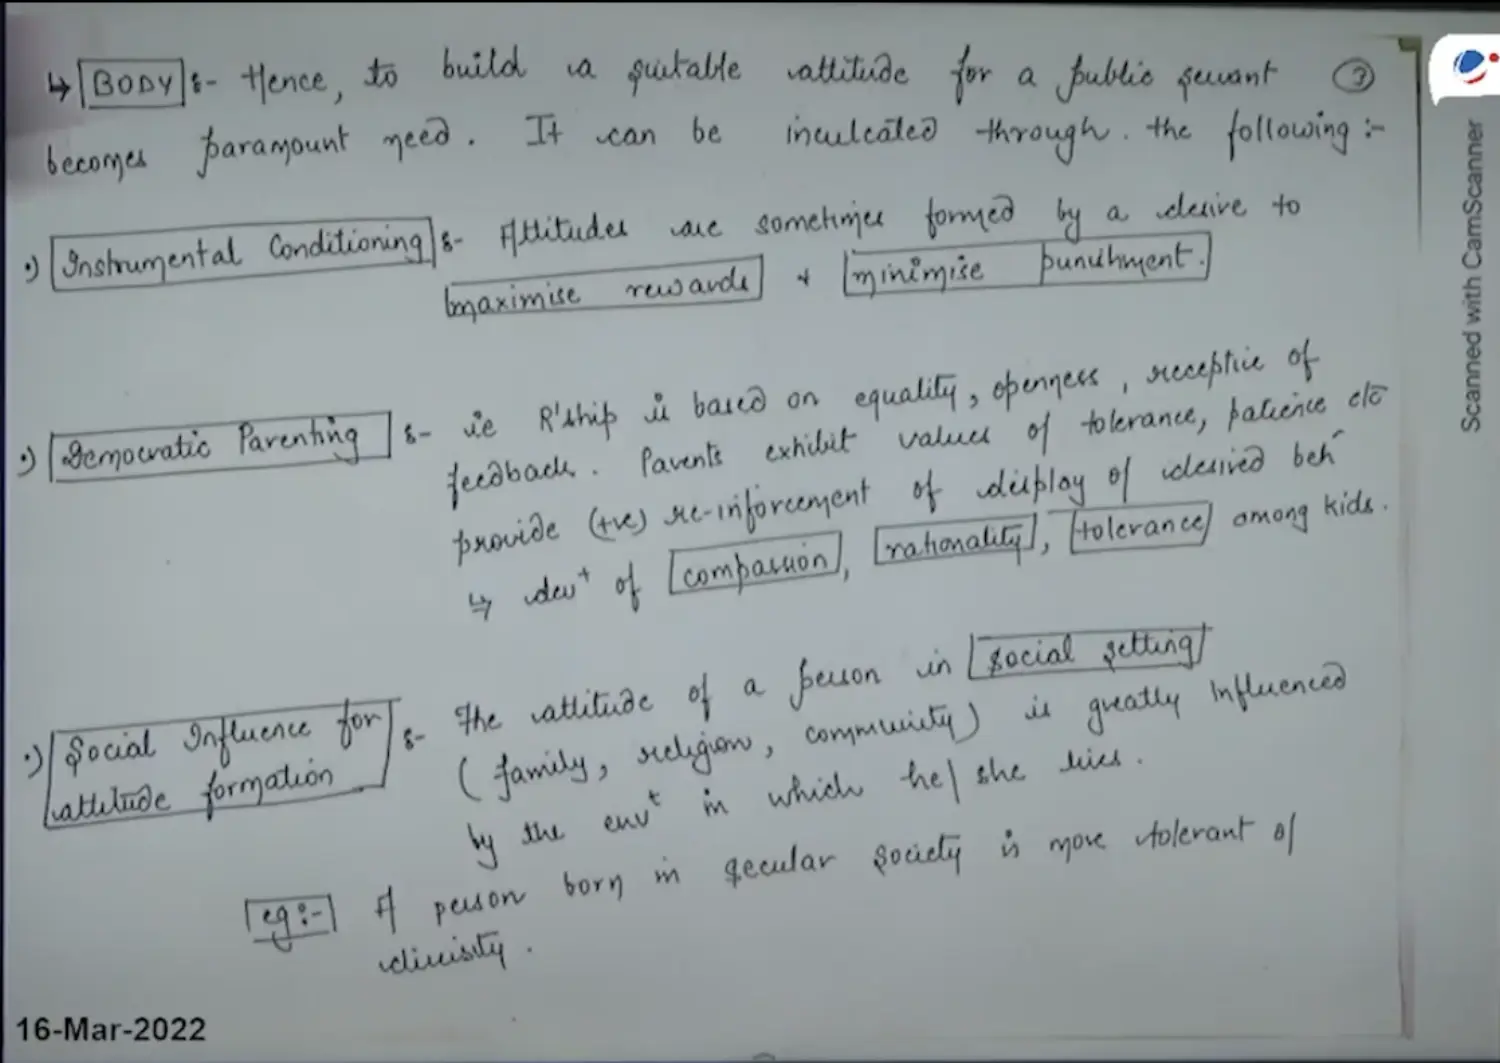 ↳ BODY :- Hence, to build a suitable attitude for a public servant ③
becomes paramount need. It can be inculcated through the following :-
•) Instrumental Conditioning :- Attitudes are sometimes formed by a desire to
maximise rewards + minimise punishment.
•) Democratic Parenting :- ie R'ship is based on equality, openness, receptive of
feedback. Parents exhibit values of tolerance, patience etc
provide (+ve) re-inforcement of display of desired beh
↳ devt of compassion, rationality, tolerance among kids.
•) Social Influence for :- The attitude of a person in social setting
attitude formation (family, religion, community) is greatly Influenced
by the envt in which he/she lives.
eg:- A person born in secular society is more tolerant of
diversity.
16-Mar-2022
Scanned with CamScanner